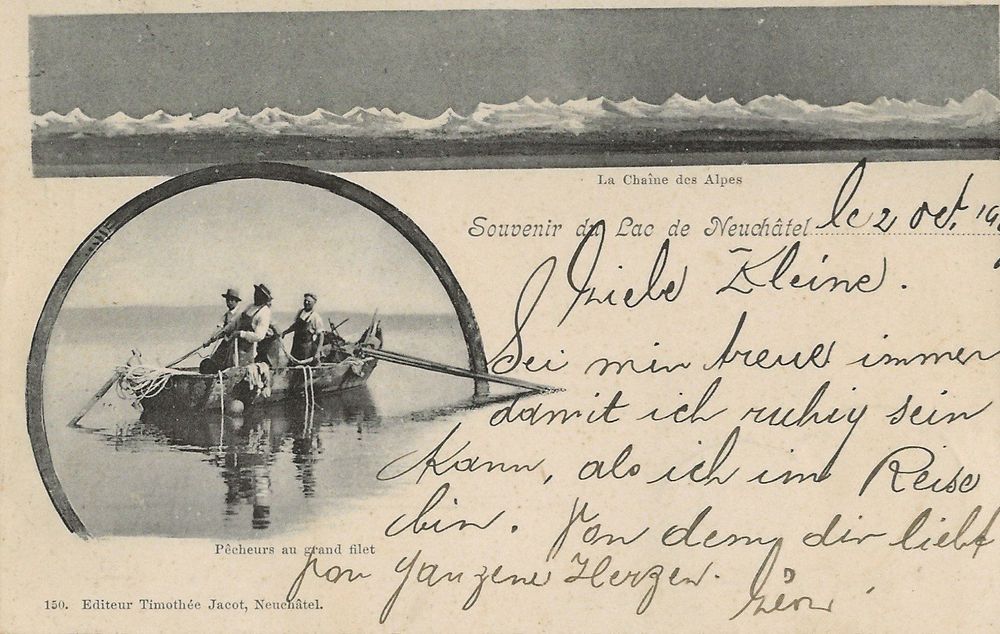 La Chaîne des Alpes
Souvenir du Lac de Neuchâtel le 2 oct. 19
Liebe Kleine.
Sei mir treue immer
damit ich ruhig sein
kann, als ich im Reise
bin. Von dem, dir liebt
von ganzene Herzen.
Léon
Pêcheurs au grand filet
150. Editeur Timothée Jacot, Neuchâtel.